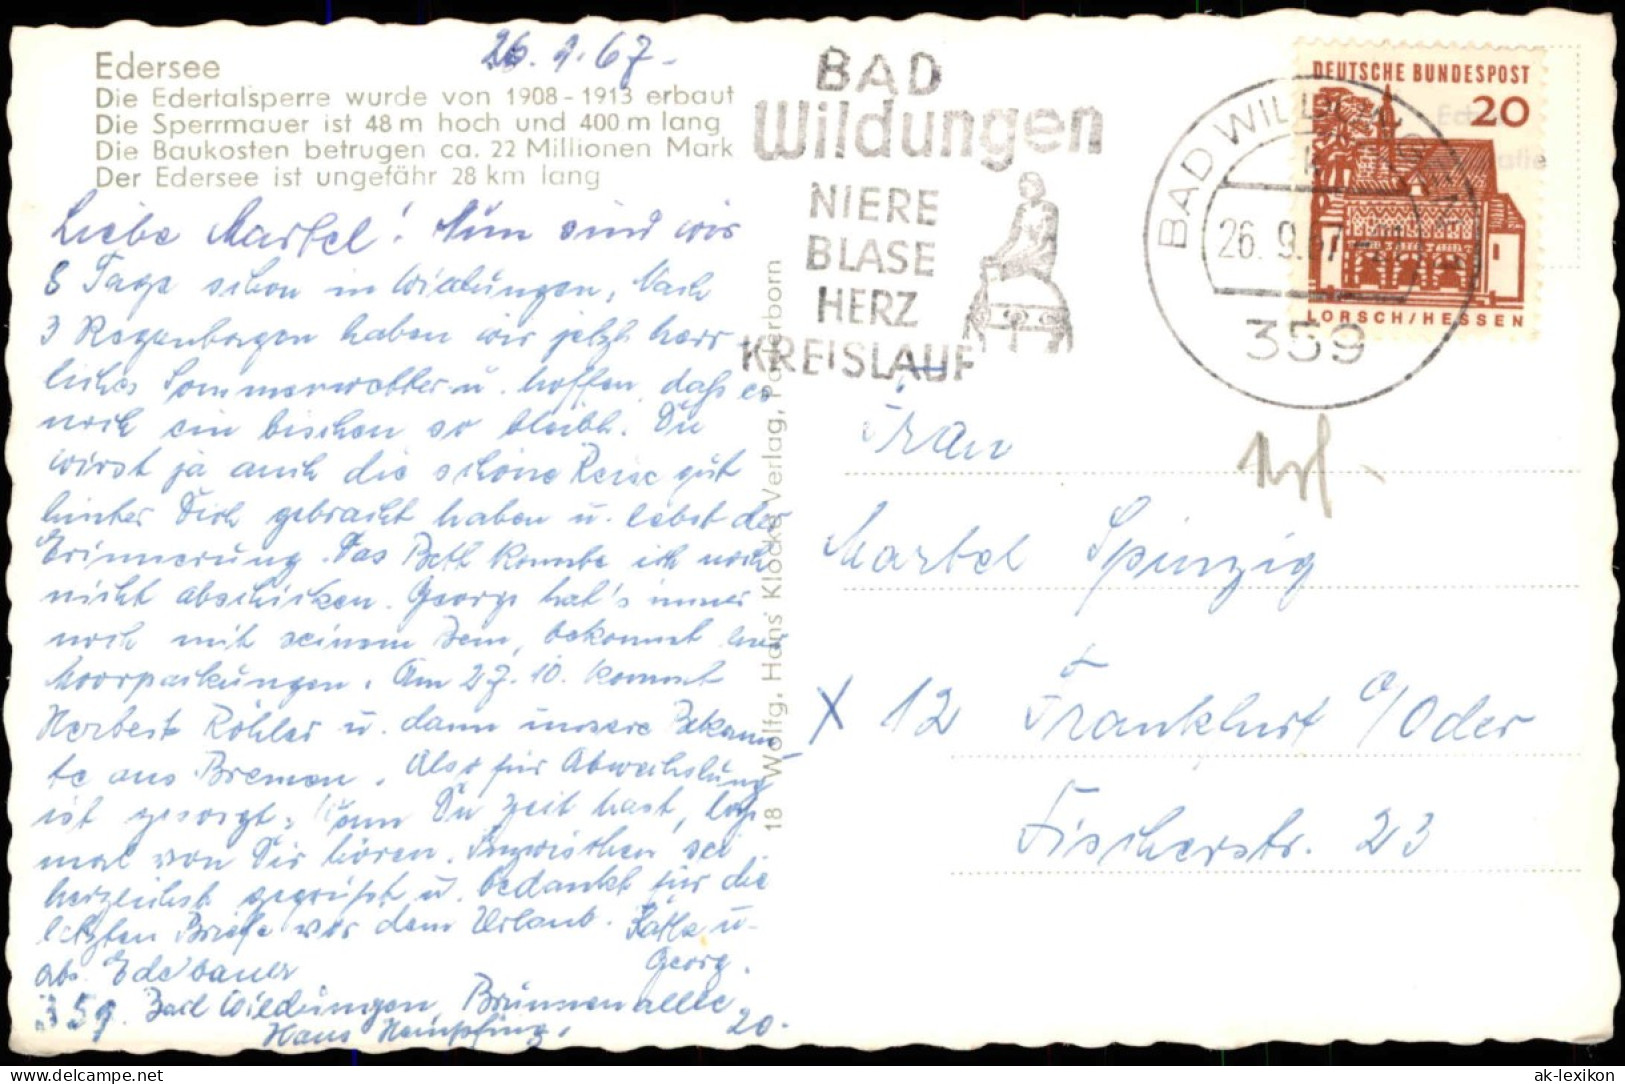 Edersee
Die Edertalsperre wurde von 1908-1913 erbaut
Die Sperrmauer ist 48 m hoch und 400 m lang
Die Baukosten betrugen ca. 22 Millionen Mark
Der Edersee ist ungefähr 28 km lang
26.9.67.
Liebe Martel! Nun sind wir
8 Tage schon in Wildungen, Nach
3 Regentagen haben wir jetzt herr-
liches Sommerwetter u. hoffen, daß es
noch ein bischen so bleibt. Du
wirst ja auch die schöne Reise gut
hinter Dich gebracht haben u. lebst der
Erinnerung. Das Bett konnte ich noch
nicht abschicken. Georg hat's immer
noch mit seinem Bein, bekommt hier
Moorpackungen. Am 27. 10. kommt
Herbert Röhler u. dann unsere Bekann-
te aus Bremen. Also für Abwechslung
ist gesorgt. Wenn Du Zeit hast, laß
mal von Dir hören. Inzwischen sei
herzlichst gegrüßt u. bedankt für die
letzten Briefe vor dem Urlaub. Käthe u.
Georg.
abs. Edelbauer
359. Bad Wildungen, Brunnenallee
Haus Hempfing, 20.
18 Wolfg. Hans Klocke Verlag, Paderborn
BAD
Wildungen
NIERE
BLASE
HERZ
KREISLAUF
BAD WILDUNGEN
26. 9.67
359
DEUTSCHE BUNDESPOST
20
LORSCH/HESSEN
Frau
Martel Spinzig
X 12 Frankfurt a/Oder
Fischerstr. 23
ak-lexikon